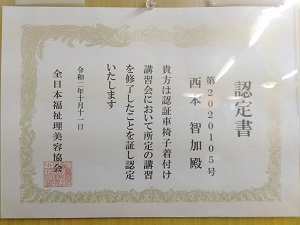 認定書
第2020105号
西本 智加殿
貴方は認証車椅子着付け
講習会において所定の講習
を修了したことを証し認定
いたします
令和二年十月十一日
全日本福祉理美容協会